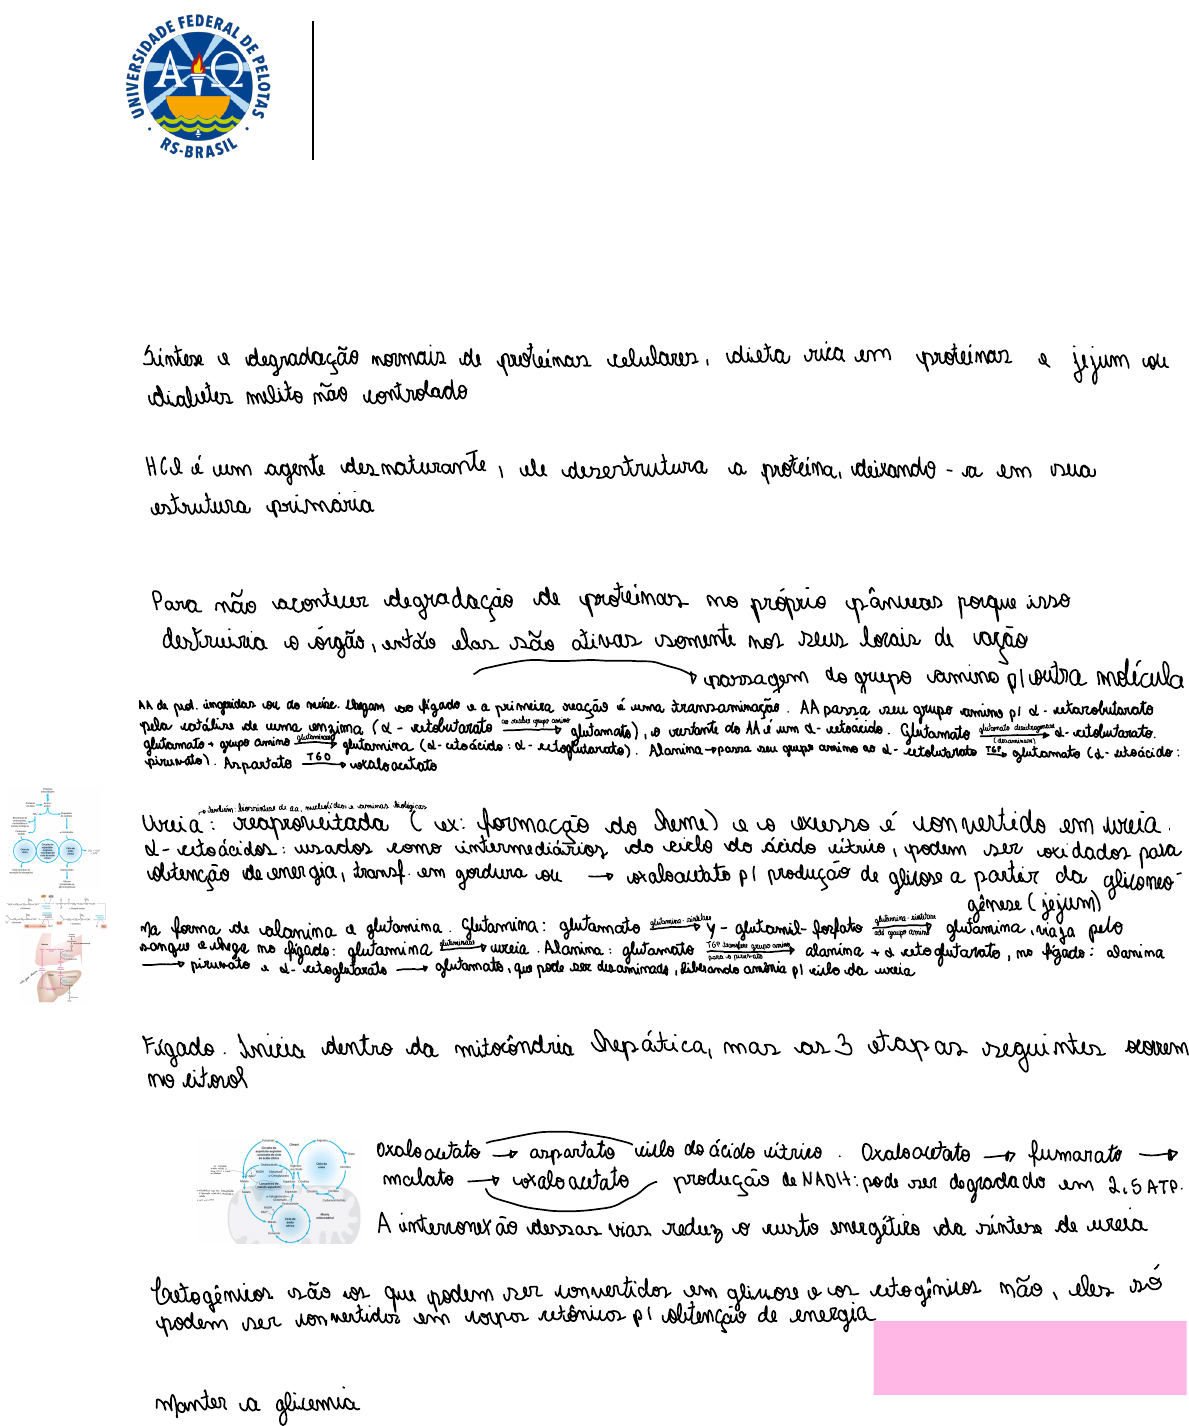 UNIVERSIDADE FEDERAL DE PELOTAS
RS-BRASIL
Síntese e degradação normais de proteínas celulares, dieta rica em proteínas e jejum ou
diabetes melito não controlado
HCl é um agente desnaturante, ele desestrutura a proteína, deixando-a em sua
estrutura primária
Para não acontecer degradação de proteínas no próprio pâncreas porque isso
destruiria o órgão, então elas são ativas somente nos seus locais de ação
passagem do grupo amino p/ outra molécula
AA de prot. ingeridas ou do chegam ao fígado e a primeira reação é uma transaminação. AA passa seu grupo amino p/ α-cetarobutarato
pela catálise de uma enzima (α-cetobutarato → ao receber grupo amino glutamato), o restante do AA é um α-cetoácido. Glutamato → glutamato desidrogenase (desaminase) α-cetobutarato.
glutamato + grupo amino → glutaminase glutamina (α-cetoácido: α-cetoglutarato). Alanina → passa seu grupo amino ao α-cetobutarato TGP → glutamato (α-cetoácido:
piruvato). Aspartato TGO → oxaloacetato
→ também: biossíntese de aa, nucleotídeos e aminas biológicas
Ureia: reaproveitada (ex: formação do heme) e o excesso é convertido em ureia.
α-cetoácidos: usados como intermediários do ciclo do ácido cítrico, podem ser oxidados para
obtenção de energia, transf. em gordura ou → oxaloacetato p/ produção de glicose a partir da gliconeo-
gênese (jejum)
Na forma de alanina e glutamina. Glutamina: glutamato → glutamina-sintetase γ-glutamil-fosfato → glutamina-sintetase add grupo amino glutamina, viaja pelo
sangue e chega no fígado: glutamina → glutaminase ureia. Alanina: glutamato → TGP transfere grupo amino para o piruvato alanina + α cetoglutarato, no fígado: alanina
→ piruvato e α-cetoglutarato → glutamato, que pode ser desaminado, liberando amônia p/ ciclo da ureia
Fígado. Inicia dentro da mitocôndria hepática, mas as 3 etapas seguintes ocorrem
no citosol
Oxaloacetato → aspartato ciclo do ácido cítrico. Oxaloacetato → fumarato →
malato → oxaloacetato produção de NADH: pode ser degradado em 2,5 ATP.
A interconexão dessas vias reduz o custo energético da síntese de ureia
são os que podem ser convertidos em glicose e os cetogênicos não, eles só
podem ser convertidos em corpos cetônicos p/ obtenção de energia
Manter a glicemia